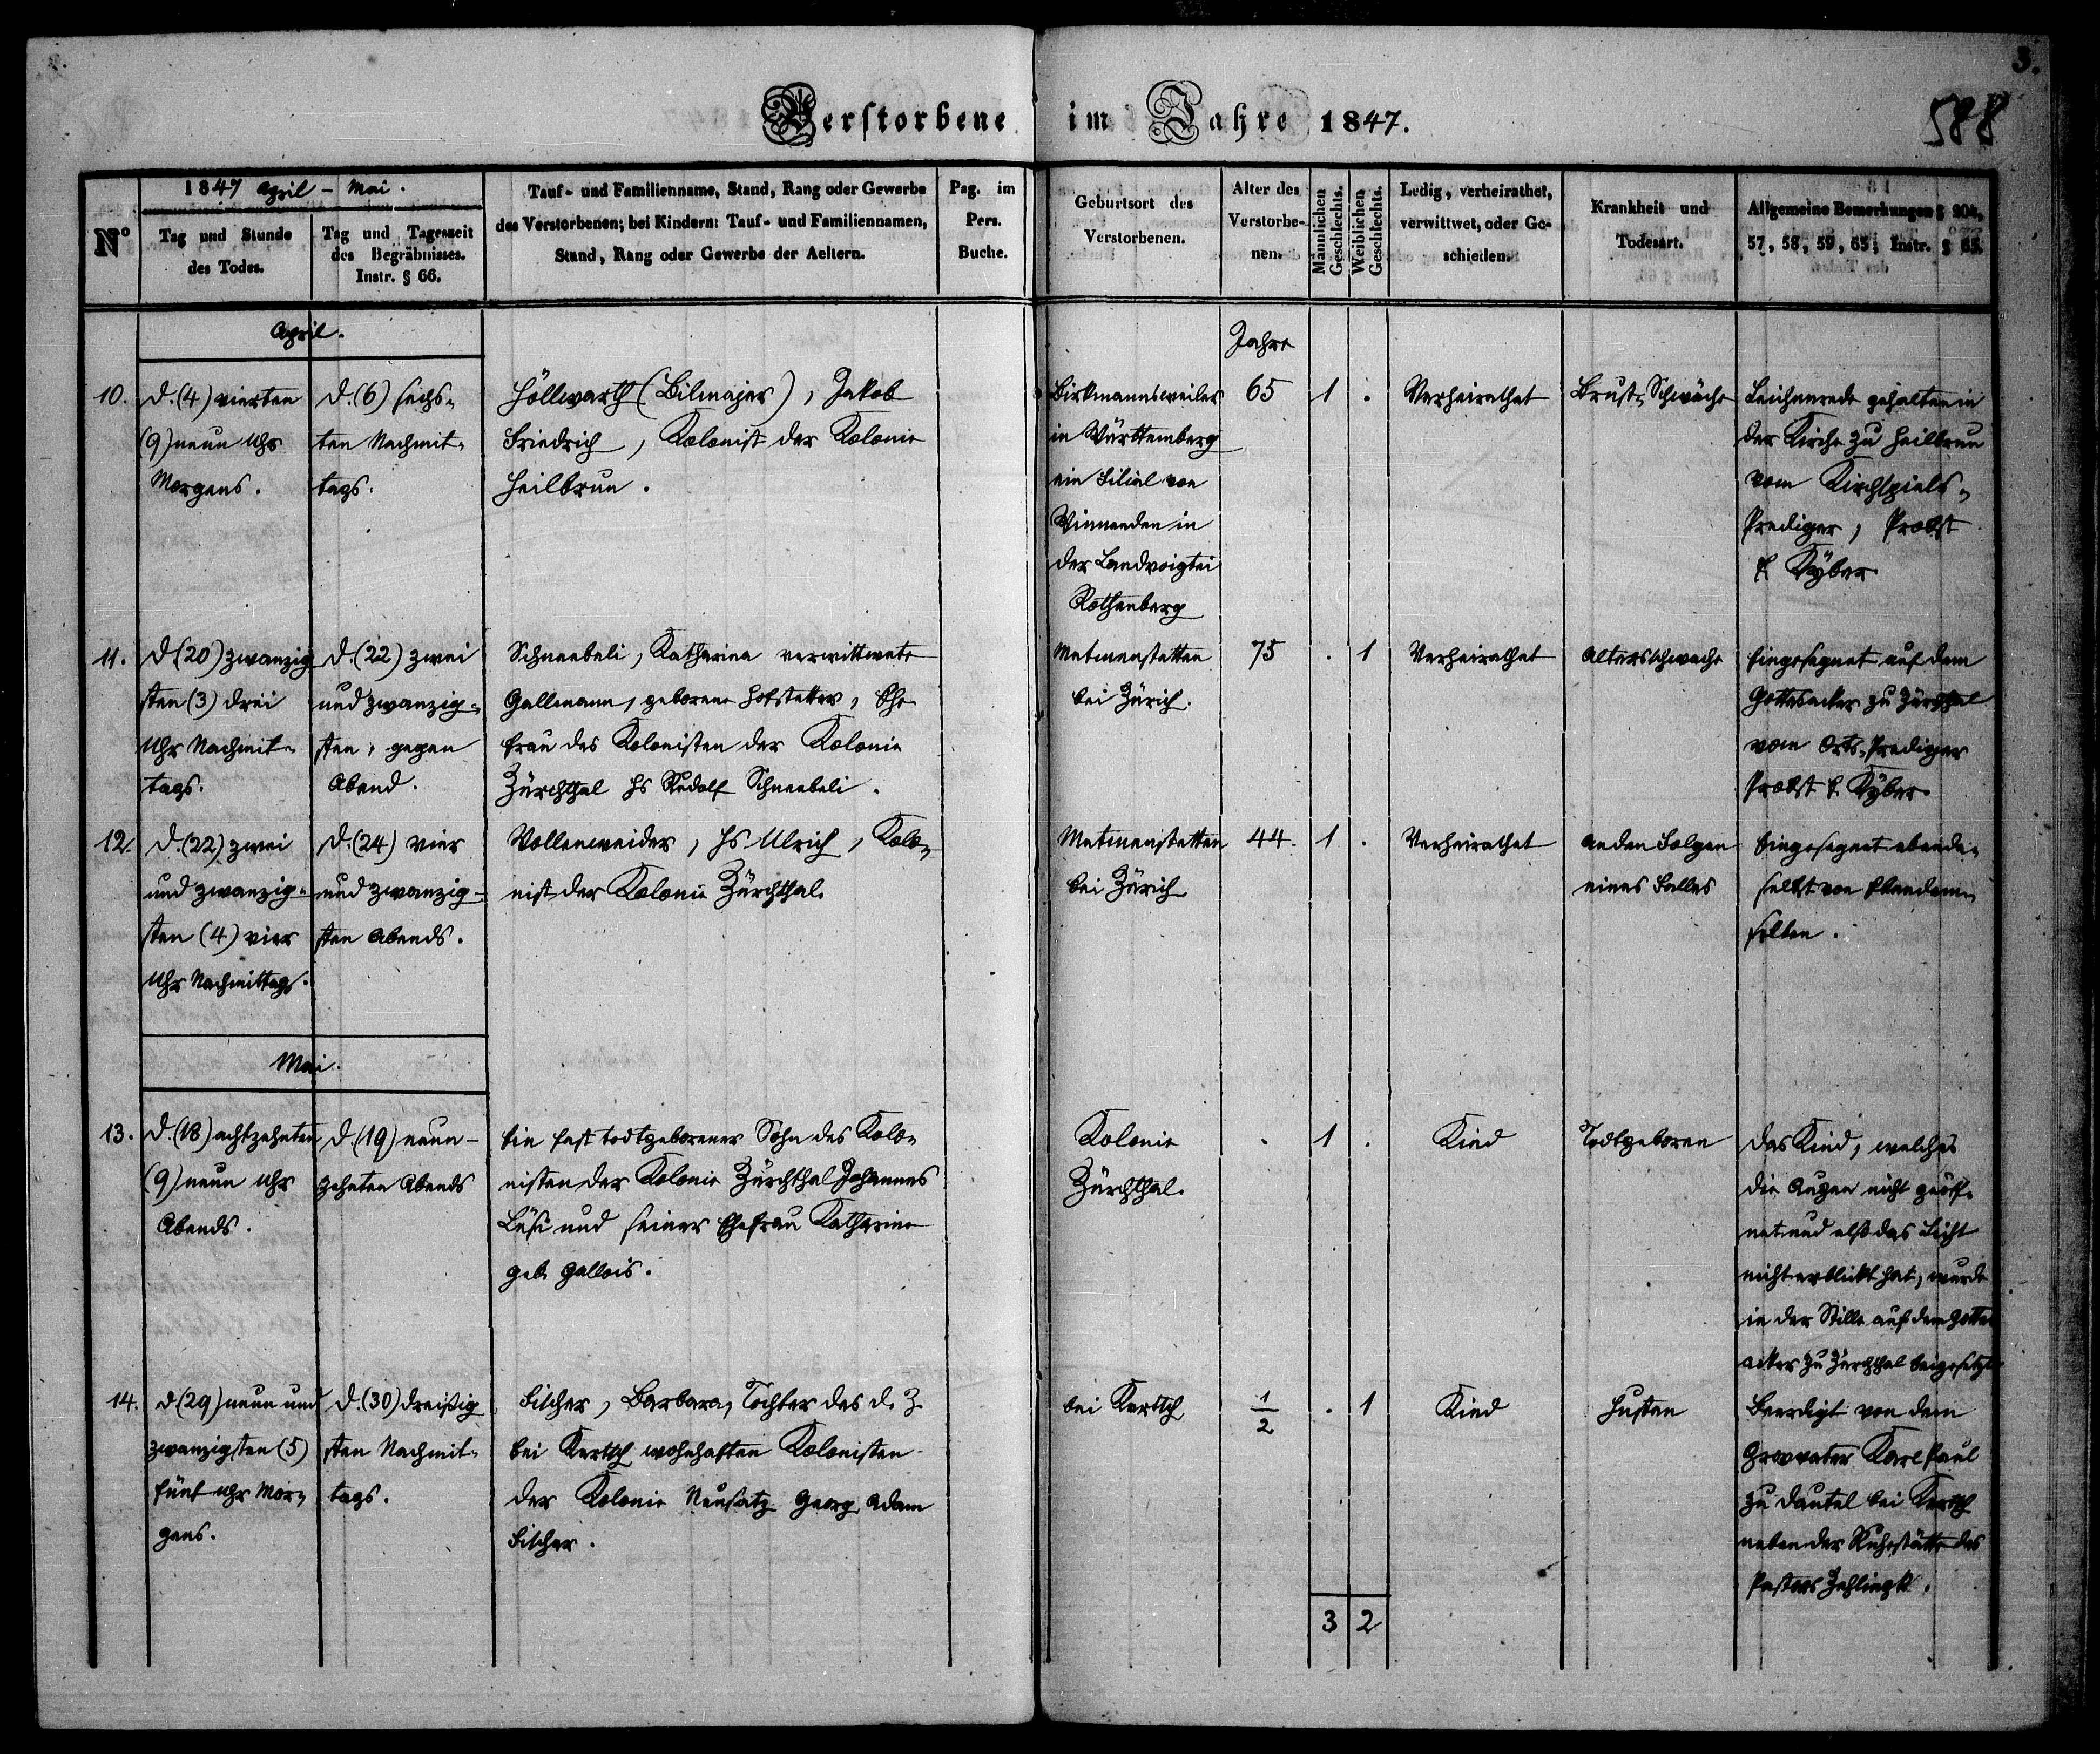 3.
588
Verstorbene im Jahre 1847.
Nº
1847 April - Mai.
Tag und Stunde
des Todes.
Tag und Tageszeit
des Begräbnisses.
Instr. § 66.
Tauf- und Familienname, Stand, Rang oder Gewerbe
des Verstorbenen; bei Kindern: Tauf- und Familiennamen,
Stand, Rang oder Gewerbe der Aeltern.
Pag. im
Pers.
Buche.
Geburtsort des
Verstorbenen.
Alter des
Verstorbe-
nen.
Männlichen
Geschlechts.
Weiblichen
Geschlechts.
Ledig, verheirathet,
verwittwet, oder Ge-
schieden.
Krankheit und
Todesart.
Allgemeine Bemerkungen § 204,
57, 58, 59, 65; Instr. § 65.
April.
Jahre
10.
d. (4) vierten
(9) neun Uhr
Morgens.
d. (6) sechs-
ten Nachmit-
tags.
Höllwarth (Bilmajer), Jakob
Friedrich, Kolonist der Kolonie
Heilbrun.
Birkmannsweiler
in Württemberg
ein Filial von
Winnenden in
der Landvoigtei
Rothenberg
65
1
.
Verheirathet
Brust-Schwäche
Leichenrede gehalten in
der Kirche zu Heilbrun
vom Kirchspiels-
Prediger, Probst
F. Kyber
11.
d. (20) zwanzig
sten (3) drei
Uhr Nachmit-
tags.
d. (22) zwei
und zwanzig-
sten, gegen
Abend.
Schneebeli, Katharina verwittwete
Gallmann, geborene Hofstetter, Ehe
frau des Kolonisten der Kolonie
Zürchthal Hs Rudolf Schneebeli.
Metmenstetten
bei Zürich.
75
.
1
Verheirathet
Altersschwäche
Eingesegnet auf dem
Gottesacker zu Zürchthal
vom Orts-Prediger
Probst F. Kyber
12.
d. (22) zwei
und zwanzig-
sten (4) vier
Uhr Nachmittags.
d. (24) vier
und zwanzig-
sten Abends.
Vollenweider, Hs Ulrich, Kolo-
nist der Kolonie Zürchthal.
Metmenstetten
bei Zürich
44.
1
.
Verheirathet
An den Folgen
eines Falles
Eingesegnet ebenda-
selbst von Ebendem-
selben.
Mai.
13.
d. (18) achtzehnten
(9) neun Uhr
Abends.
d. (19) neun-
zehnten Abends
Ein fast todtgeborener Sohn des Kolo-
nisten der Kolonie Zürchthal Johannes
Lüssi und seiner Ehefrau Katharine
geb. Gallois.
Kolonie
Zürchthal.
.
1
.
Kind
Todtgeboren
Das Kind, welches
die Augen nicht geöff-
net und also das Licht
nicht erblickt hat, wurde
in der Stille auf dem Gottes
acker zu Zürchthal beigesetzt
14.
d. (29) neun und
zwanzigsten (5)
fünf Uhr Mor-
gens.
d. (30) dreißig
sten Nachmit-
tags.
Fischer, Barbara, Tochter des d. Z.
bei Kertsch wohnhaften Kolonisten
der Kolonie Neusatz Georg Adam
Fischer.
bei Kertsch
1/2
.
1
Kind
Husten
Beerdigt von dem
Grosvater Karl Paul
zu Dautel bei Kertsch
neben der Ruhestätte des
Pastors
3
2